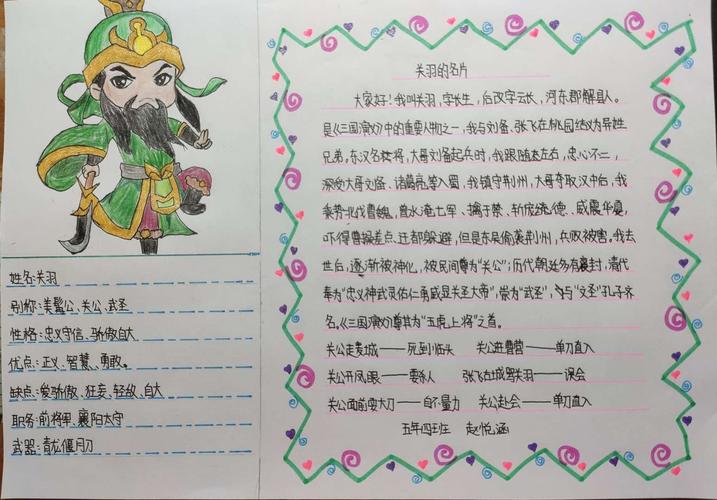 姓名:关羽
别称:美髯公、关公、武圣
性格:忠义守信、骄傲自大
优点:正义、智慧、勇敢。
缺点:爱骄傲、狂妄、轻敌、自大
职务:前将军、襄阳太守
武器:青龙偃月刀
关羽的名片
大家好!我叫关羽,字长生,后改字云长,河东郡解县人。
是《三国演义》中的重要人物之一,我与刘备、张飞在桃园结义为异姓
兄弟。东汉名将,大哥刘备起兵时,我跟随左右,忠心不二,
深受大哥刘备、诸葛亮等入蜀,我镇守荆州,大哥夺取汉中后,我
乘势北伐曹魏,曾水淹七军、擒于禁、斩庞德、威震华夏,
吓得曹操差点迁都躲避,但是东吴偷袭荆州,兵败被害。我去
世后,逐渐被神化,被民间尊为“关公”;历代朝廷多有褒封,清代
奉为“忠义神武灵佑仁勇威显关圣大帝”,崇为“武圣”,与“文圣”孔子齐
名。《三国演义》尊其为“五虎上将”之首。
关公走麦城——死到临头 关公进曹营——单刀直入
关公开凤眼——要杀人 张飞在城骂关羽——误会
关公面前耍大刀——自不量力 关公赴会——单刀直入
五年四班 赵悦涵